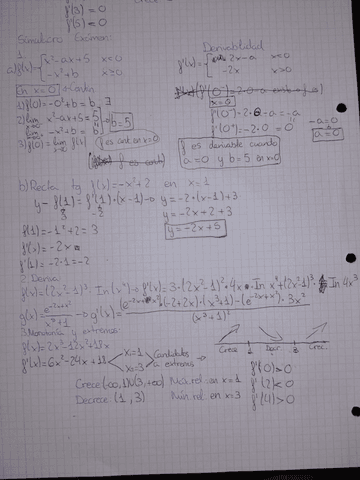 f'(3) = 0
f'(5) = 0
Simulacro Examen:
1
a) f(x) { x²-ax+5 x<0
-x²+b x≥0
Derivabilidad
f'(x) = { 2x-a x<0
-2x x>0
En x=0
1) f(0) = -0²+b = b
2) lim x²-ax+5 = 5
lim -x²+b = b
b=5
3) f(0) = lim f(x) f es cont en x=0
x=0
f'(0⁻) = 2·0-a = -a
f'(0⁺) = -2·0 = 0
-a=0
a=0
f es derivable cuando
a=0 y b=5 en x=0
b) Recta tg f(x) = -x²+2 en x=1
y - f(1) = f'(1)·(x-1) → y = -2·(x-1)+3
3 -2
y = -2x+2+3
y = -2x+5
f(1) = -1²+2 = 3
f'(x) = -2x
f'(1) = -2·1 = -2
2. Deriva
f(x) = (2x²-1)³ · ln(x⁴) → f'(x) = 3·(2x²-1)²·4x · ln x⁴ + (2x²-1)³ · 4x³
g(x) = e^(-2x+x²) / x³+1 → g'(x) = (e^(-2x+x²)·(-2+2x)·(x³+1) - (e^(-2x+x²)·3x² / (x³+1)²
3. Monotonía y extremos:
f(x) = 2x³-12x²+18x
f'(x) = 6x²-24x+18 x₁=1 x₂=3 Candidatos a extremos →
Crece 1 Decr. 3 Crec.
Crece (-∞,1)U(3,+∞) Máx. rel. en x=1
Decrece (1,3) Mín. rel. en x=3
f'(0) > 0
f'(2) < 0
f'(4) > 0